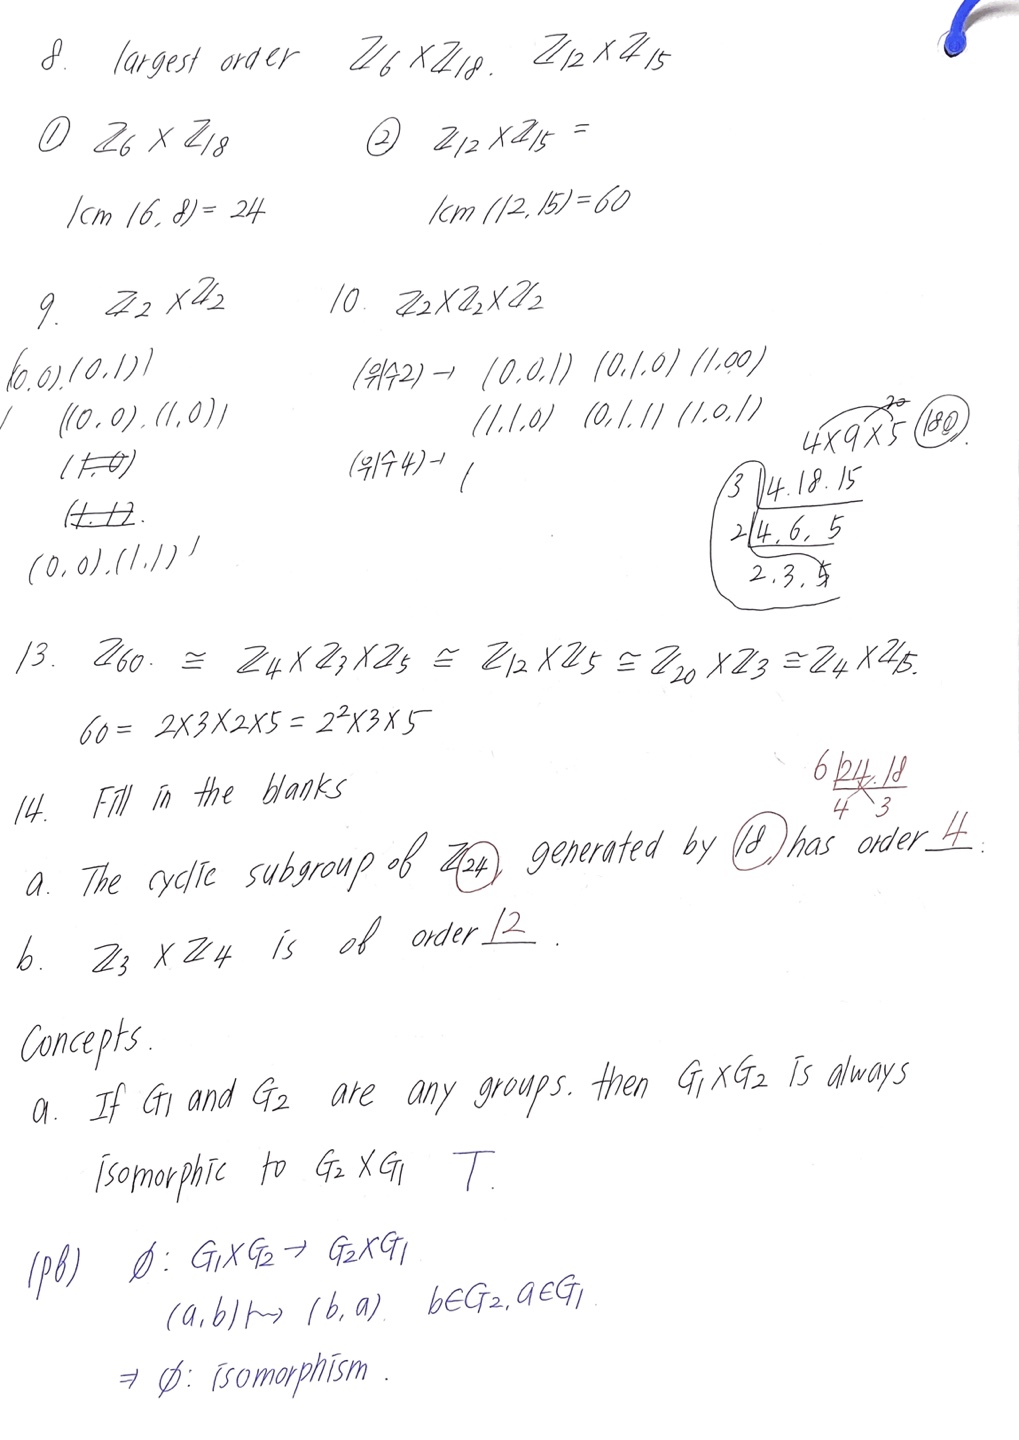 8. largest order ℤ6 × ℤ18. ℤ12 × ℤ15
① ℤ6 × ℤ18 ② ℤ12 × ℤ15 =
lcm (6, 8) = 24 lcm (12, 15) = 60
9. ℤ2 × ℤ2 10. ℤ2 × ℤ2 × ℤ2
(0.0).(0.1)) (위수2) → (0.0.1) (0.1.0) (1.00)
((0.0).(1.0)) (1.1.0) (0.1.1) (1.0.1)
4×9×5 (180).
(1.0) (위수4) → (
3 4.18.15
(1.1).
2 4.6.5
(0.0).(1.1)
2.3.5
13. ℤ60. ≅ ℤ4 × ℤ3 × ℤ5 ≅ ℤ12 × ℤ5 ≅ ℤ20 × ℤ3 ≅ ℤ4 × ℤ15.
60 = 2×3×2×5 = 2²×3×5
6 24.18
4 3
14. Fill in the blanks
a. The cyclic subgroup of ℤ24 generated by 18 has order 4.
b. ℤ3 × ℤ4 is of order 12.
Concepts.
a. If G1 and G2 are any groups. then G1×G2 is always
isomorphic to G2 × G1 T.
(pf) ø: G1×G2 → G2×G1
(a,b) ↦ (b,a) b∈G2, a∈G1
⇒ ø: isomorphism.